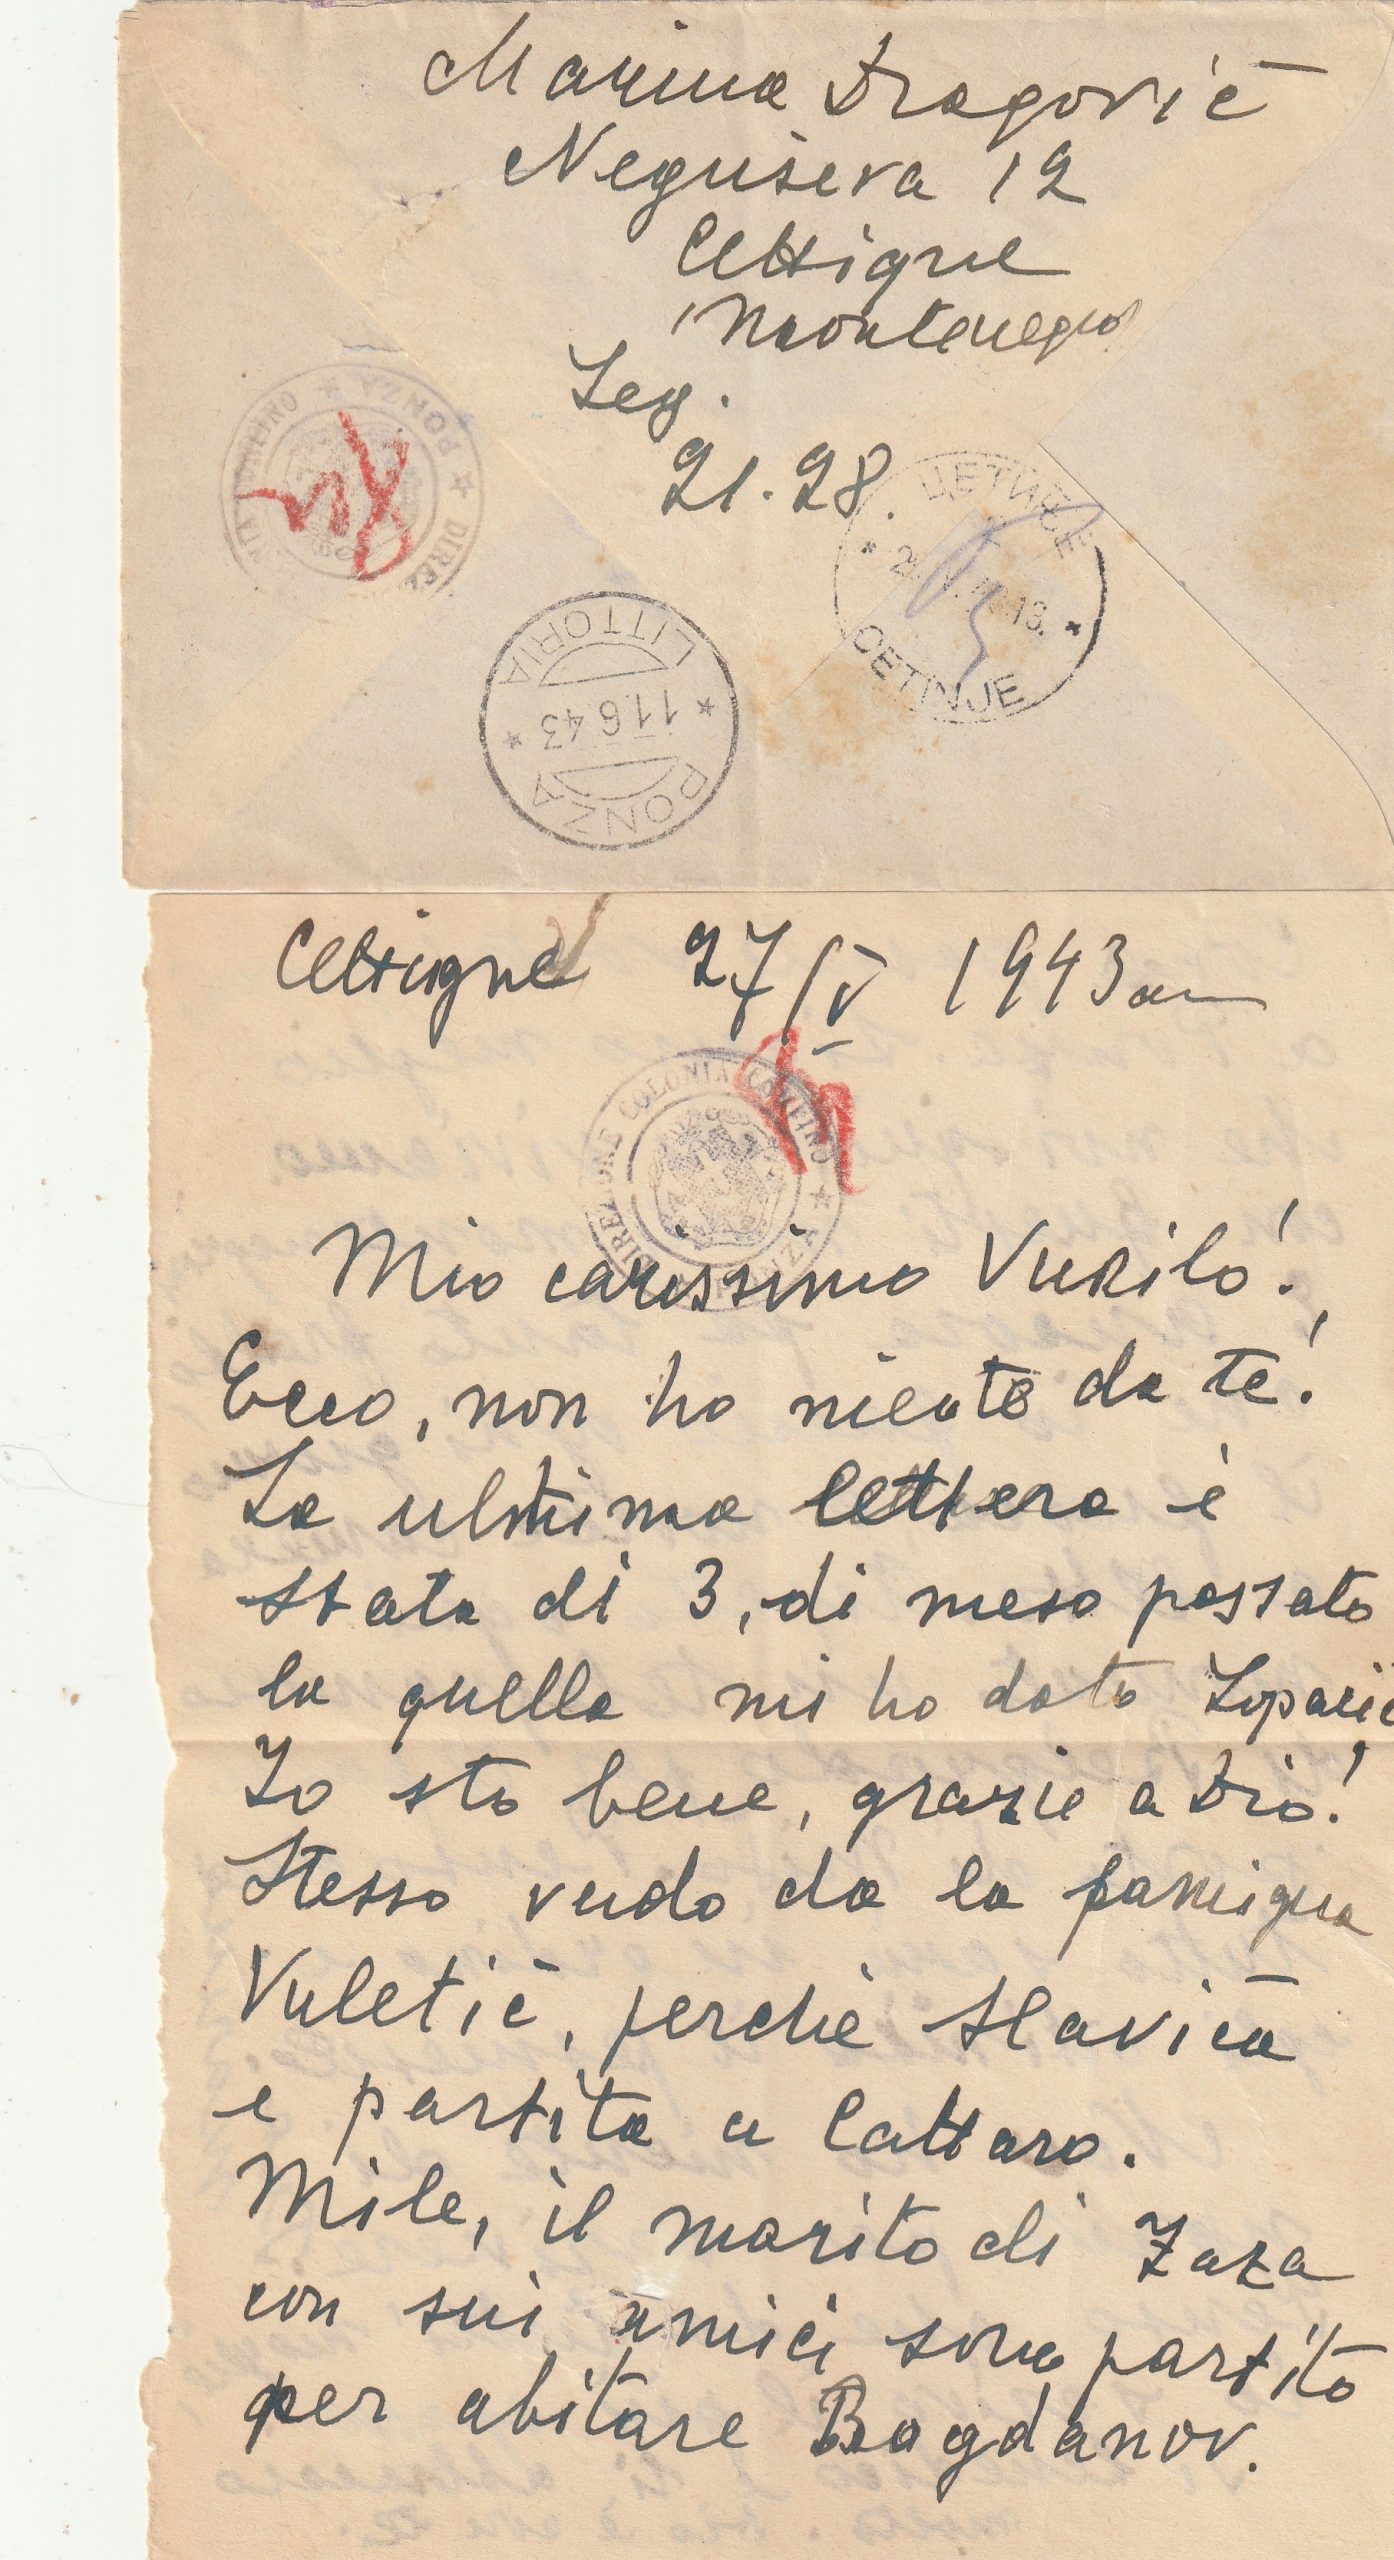 Marina Dragović
Neguseva 12
Cettigne
Montenegro
Leg.
21.28.
DIREZIONE CONFINO * PONZA *
ЦЕТИЊЕ
CETINJE
PONZA
* 11.6.43 *
LITTORIA
Cettigne 27/V 1943 an
DIREZIONE COLONIA CONFINO * PONZA
Mio carissimo Vukilo!
Ecco, non ho niente da te!
La ultima lettera è
stata di 3, di meso passato
la quella mi ha dato Loparić
Io sto bene, grazie a Dio!
Stesso vedo da la famigna
Vuletić, perchè Slavica
e partita a Cattaro.
Mile, il marito di Zaza
con sui amici sono partito
per abitare Bogdanov.